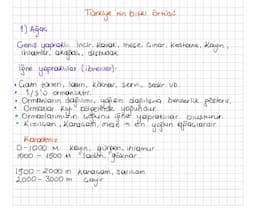 Türkiye'nin bitki örtüsü
1) Ağaç
Geniş yapraklı: İncir, Kavak, meşe, Çınar, Kestane, Kayın,
ıhlamur, akağaç, dişbudak
İğne yapraklılar (ibreliler):
Çam, ladin, köknar, servi, sedir vb.
ormanlıktır.
Ormanların dağılımı, yağışın dağılışına benzerlik gösterir.
Ormanlar kıyı bölgelerde yoğundur.
Ormanlarımızın çoğunu iğne yapraklılar oluşturur.
Kızılçam, Karaçam, meşe en yoğun ağaçlardır
Karadeniz
0-1000 M Kayın, gürgen, ıhlamur
1000 - 1500 M ladin, göknar
1500-2000 m Karaçam, sarıçam
2000-3000 m Çayır